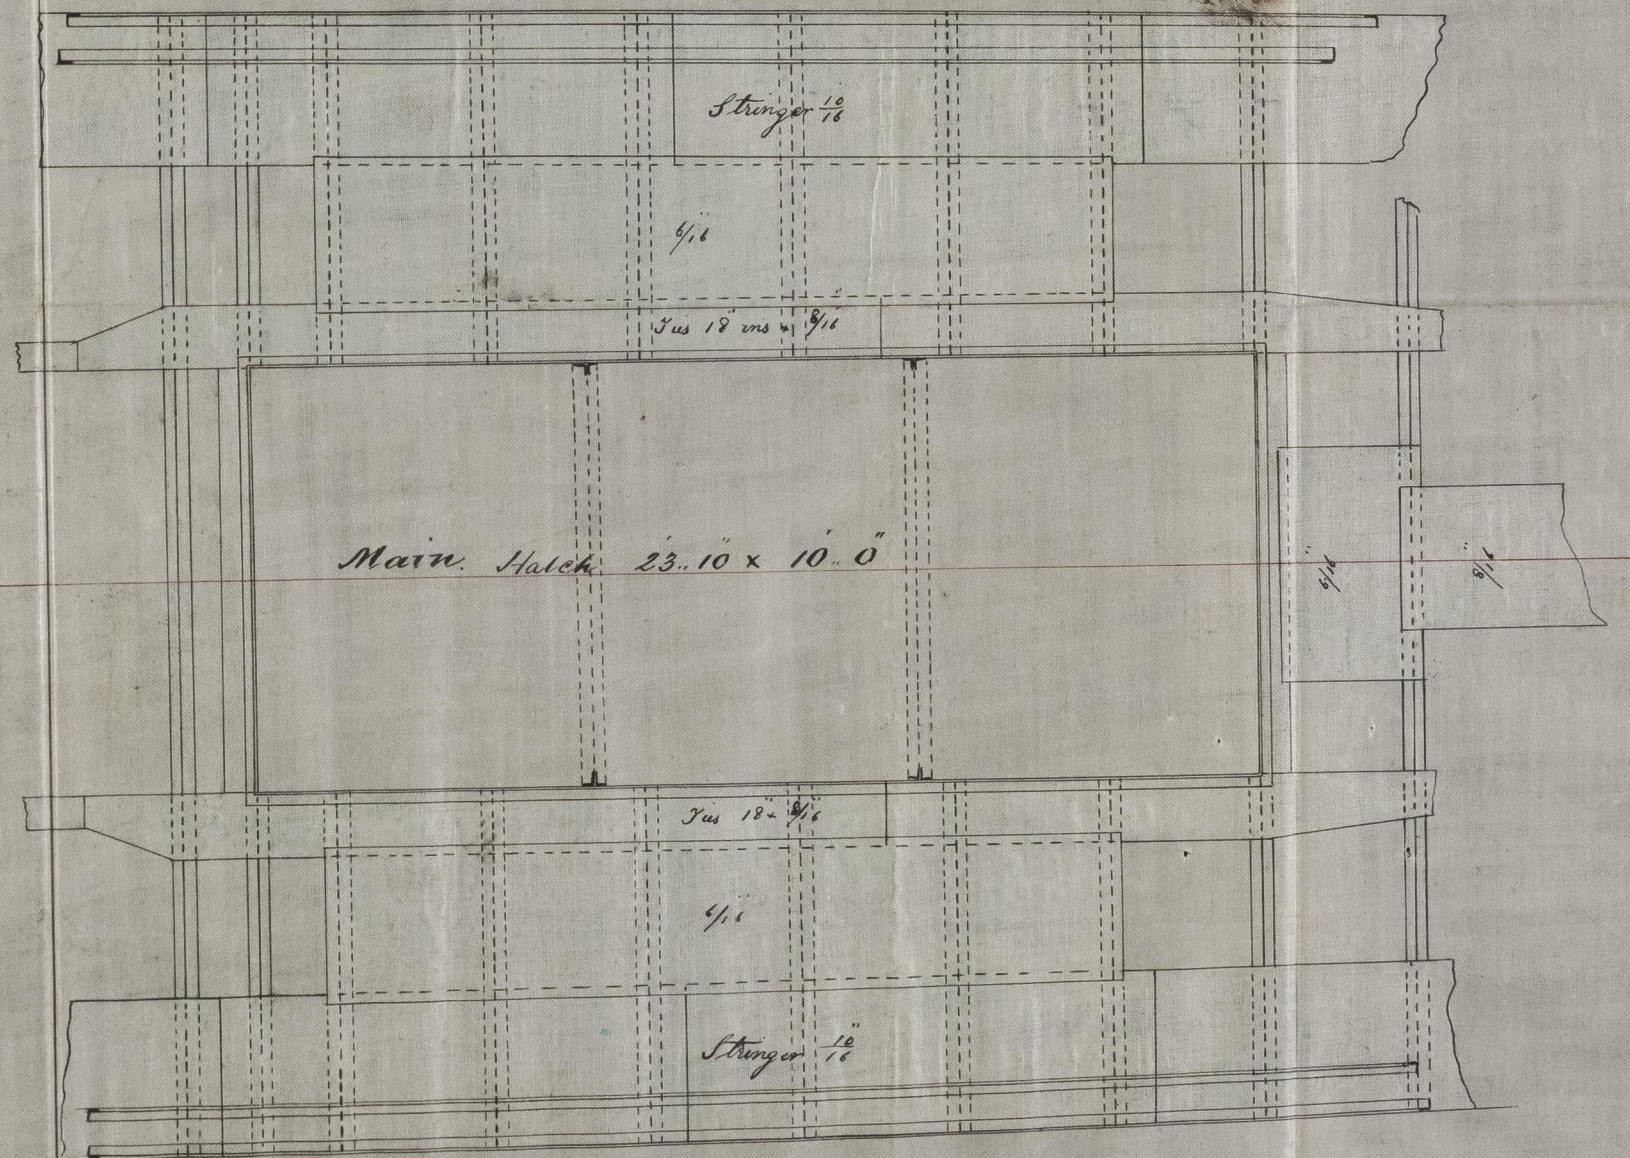 Stringer 10/16
6/16"
Ties 18" ins x 8/16"
Main. Hatch 23'..10" x 10'..0"
6/16"
8/16"
Ties 18" x 8/16"
6/16
Stringer 10/16"